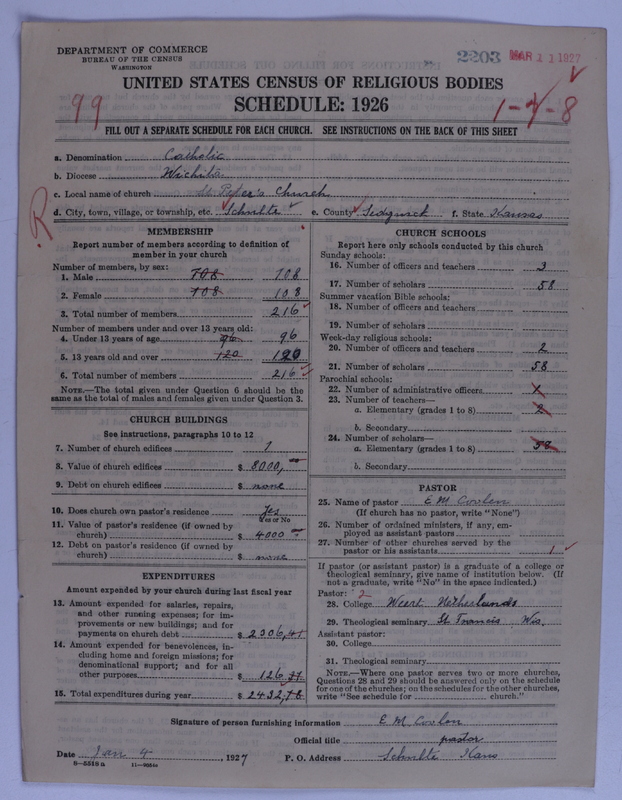 DEPARTMENT OF COMMERCE
BUREAU OF THE CENSUS
WASHINGTON
2203 MAR 11 1927
UNITED STATES CENSUS OF RELIGIOUS BODIES
SCHEDULE: 1926
99
1-4-8
FILL OUT A SEPARATE SCHEDULE FOR EACH CHURCH. SEE INSTRUCTIONS ON THE BACK OF THIS SHEET
a. Denomination Catholic
b. Diocese Wichita
c. Local name of church St. Peter's Church
d. City, town, village, or township, etc. Schulte e. County Sedgwick f. State Kansas
R
MEMBERSHIP
Report number of members according to definition of
member in your church
Number of members, by sex:
1. Male 108 108
2. Female 108 108
3. Total number of members 216
Number of members under and over 13 years old:
4. Under 13 years of age 96 96
5. 13 years old and over 120 120
6. Total number of members 216
NOTE.—The total given under Question 6 should be
same as the total of males and females given under Question 3.
CHURCH BUILDINGS
See instructions, paragraphs 10 to 12
7. Number of church edifices 1
8. Value of church edifices $ 8000,
9. Debt on church edifices $ none
10. Does church own pastor's residence yes
Yes or No
11. Value of pastor's residence (if owned by
church) $ 4000
12. Debt on pastor's residence (if owned by
church) $ none
EXPENDITURES
Amount expended by your church during last fiscal year
13. Amount expended for salaries, repairs,
and other running expenses; for im-
provements or new buildings; and for
payments on church debt $ 2306,41
14. Amount expended for benevolences, in-
cluding home and foreign missions; for
denominational support; and for all
other purposes $ 126
15. Total expenditures during year $ 2432,78
CHURCH SCHOOLS
Report here only schools conducted by this church
Sunday schools:
16. Number of officers and teachers 3
17. Number of scholars 58
Summer vacation Bible schools:
18. Number of officers and teachers
19. Number of scholars
Week-day religious schools:
20. Number of officers and teachers 2
21. Number of scholars 58
Parochial schools:
22. Number of administrative officers
23. Number of teachers—
a. Elementary (grades 1 to 8) 2
b. Secondary
24. Number of scholars—
a. Elementary (grades 1 to 8) 58
b. Secondary
PASTOR
25. Name of pastor E M
(If church has no pastor, write "None")
26. Number of ordained ministers, if any, em-
ployed as assistant pastors
27. Number of other churches served by the
pastor or his assistants 1
If pastor (or assistant pastor) is a graduate of a college or
theological seminary, give name of institution below. (If
not a graduate, write "No" in the space indicated.)
Pastor: 2
28. College Weert Netherlands
29. Theological seminary St Francis Wis.
Assistant pastor:
30. College
31. Theological seminary
NOTE.—Where one pastor serves two or more churches,
Questions 28 and 29 should be answered only on the schedule
for one of the churches; on the schedules for the other churches,
write "See schedule for church."
Signature of person furnishing information E M
Official title pastor
Date Jan 4, 1927 P. O. Address Schulte Kans
8—2518 a